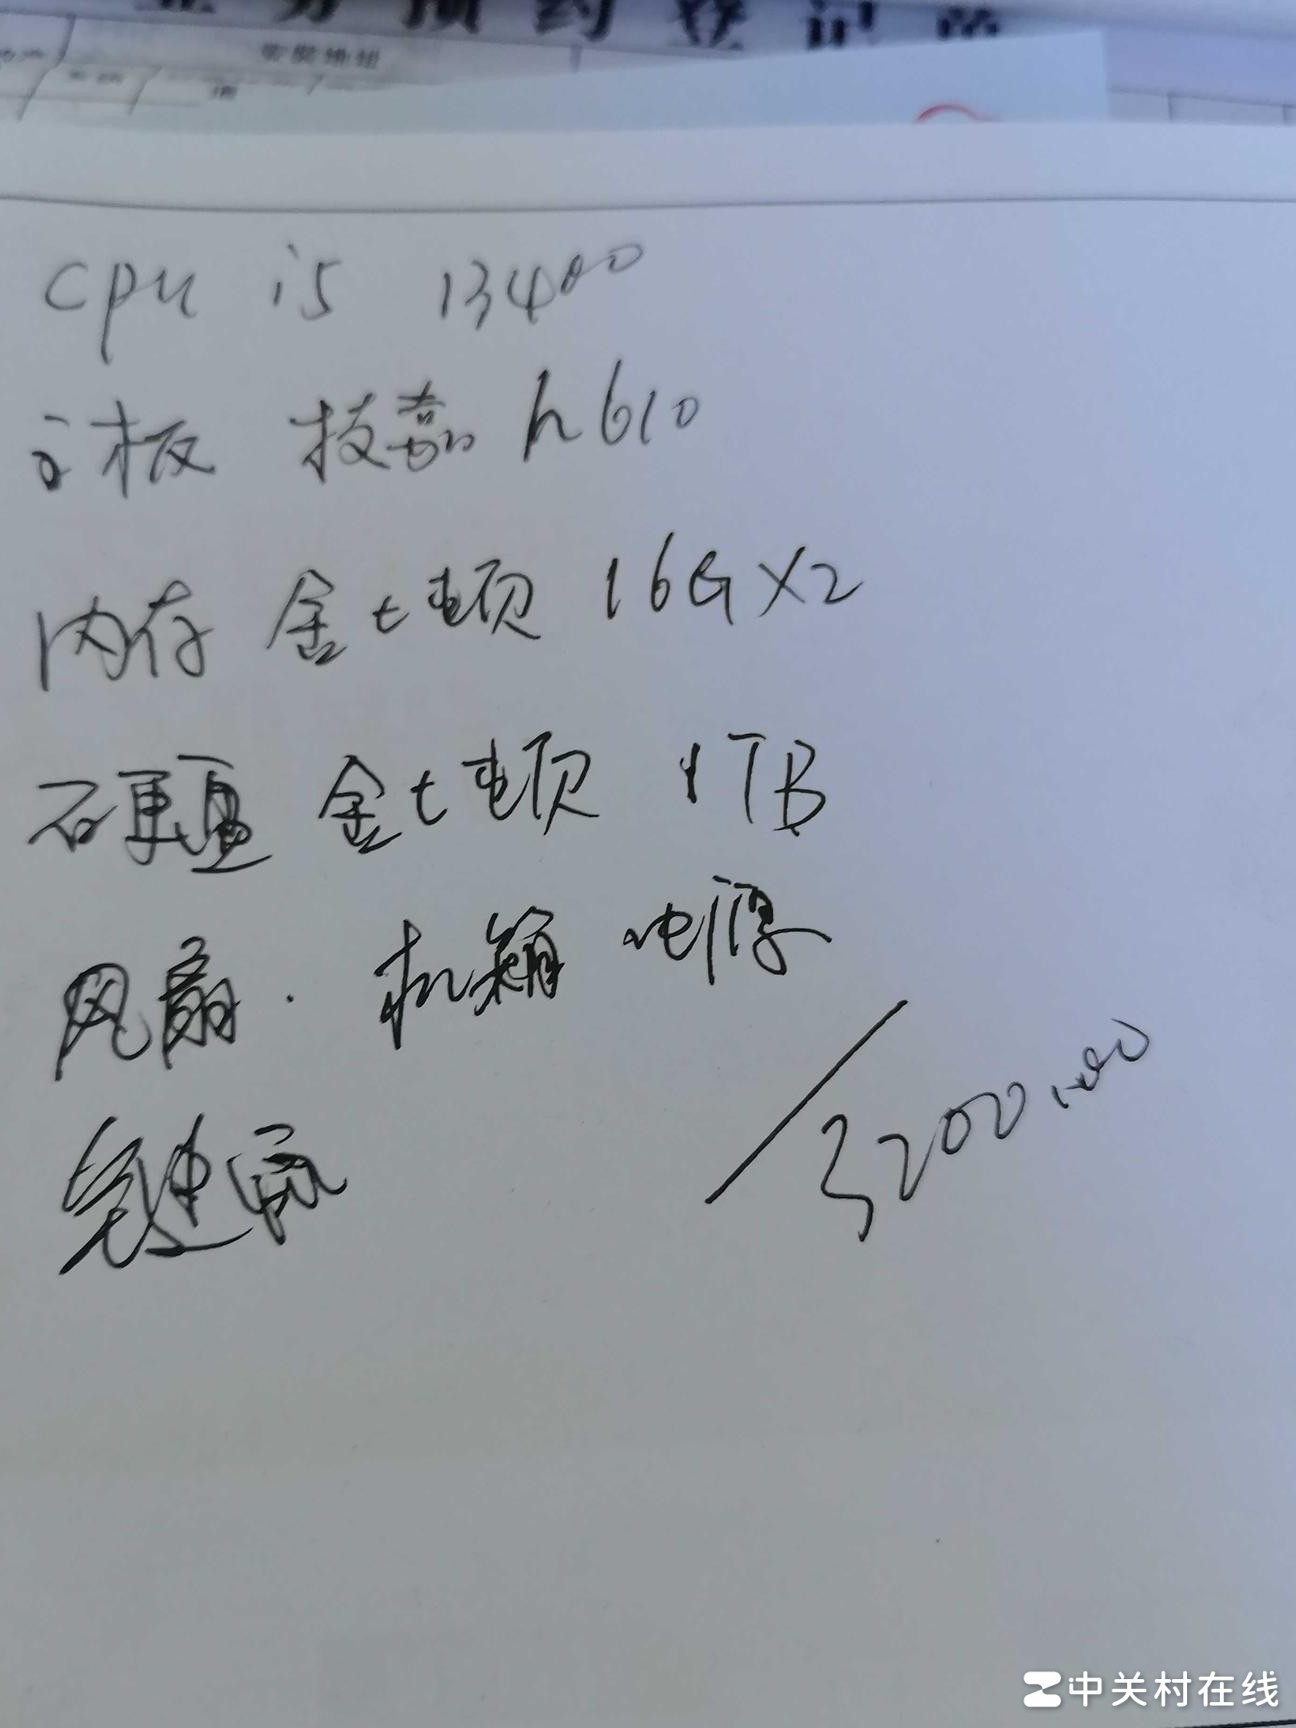 预约登记
安装地址
cpu i5 13400
主板 技嘉 h610
内存 金士顿 16G X2
硬盘 金士顿 1TB
风扇. 机箱 电源
键鼠
3200.00
中关村在线